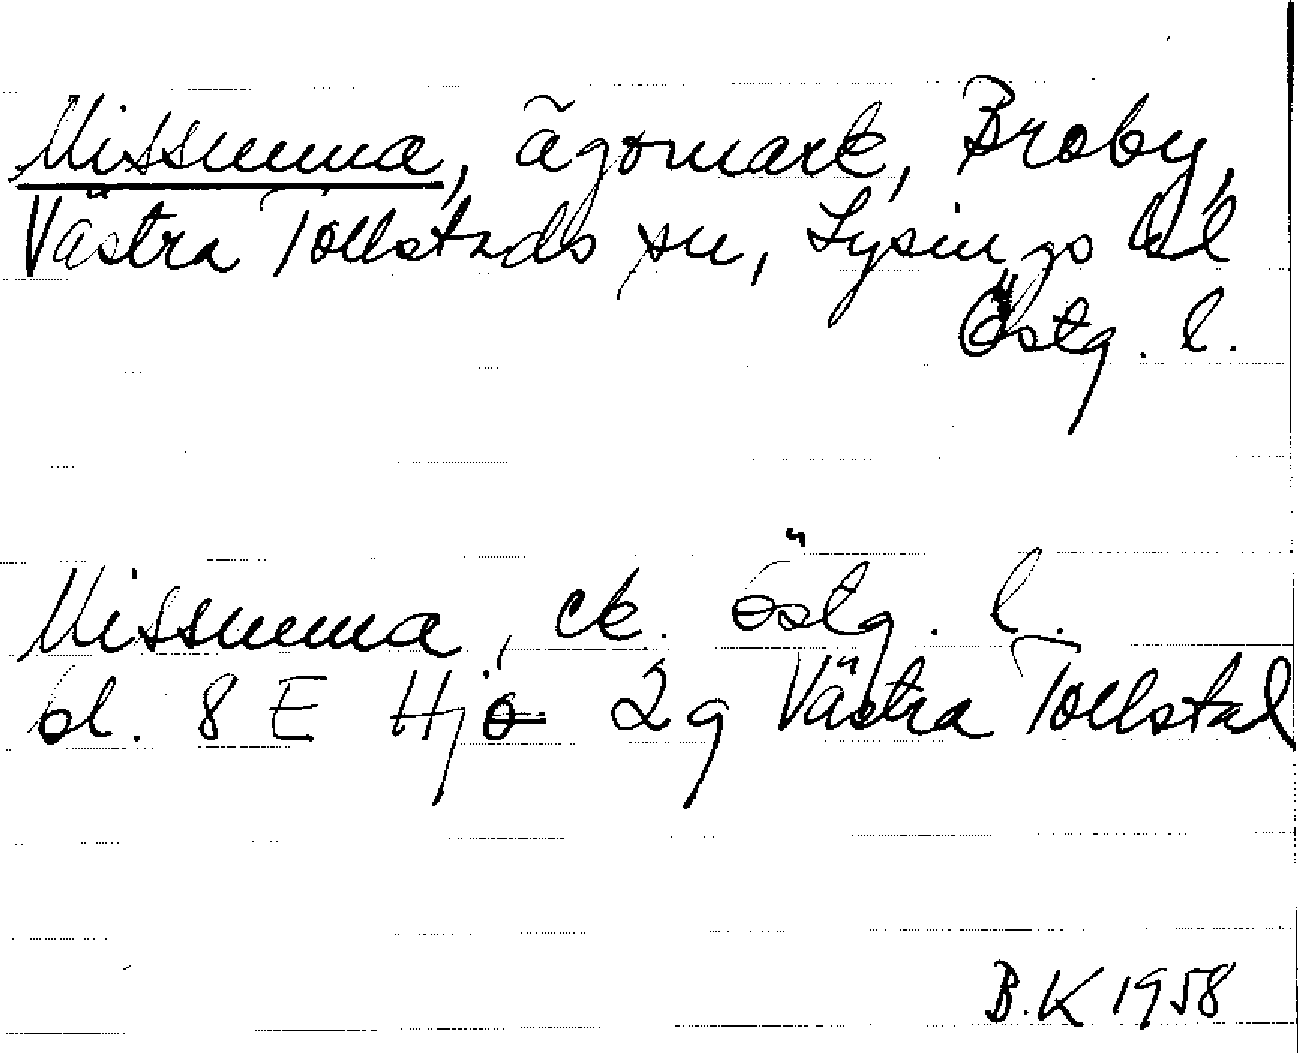 Missunna, ägomark, Broby,
Västra Tollstads sn, Lysings hd
Östg. l.
Missunna, ek. östg. l.
bl. 8 E Hjo 2g Västra Tollstad
B.K 1958